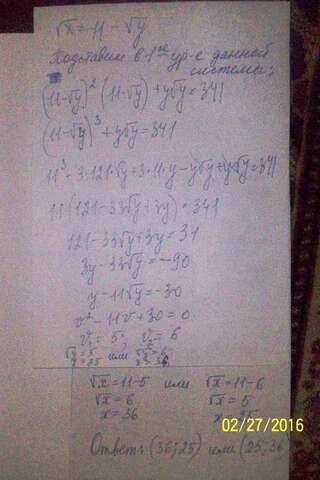 √x = 11 - √y
Подставим в 1ое ур-е данной
системы:
(11-√y)² (11-√y) + y√y = 341
(11-√y)³ + y√y = 341
11³ - 3·121·√y + 3·11·y - y√y + y√y = 341
11·(121 - 33√y + 3y) = 341
121 - 33√y + 3y = 31
3y - 33√y = -90
y - 11√y = -30
v² - 11v + 30 = 0
v₁ = 5; v₂ = 6
√y = 5 или √y = 6
y = 25 y = 36
√x = 11-5 или √x = 11-6
√x = 6 √x = 5
x = 36 x = 25
02/27/2016
Ответ: (36; 25) или (25; 36